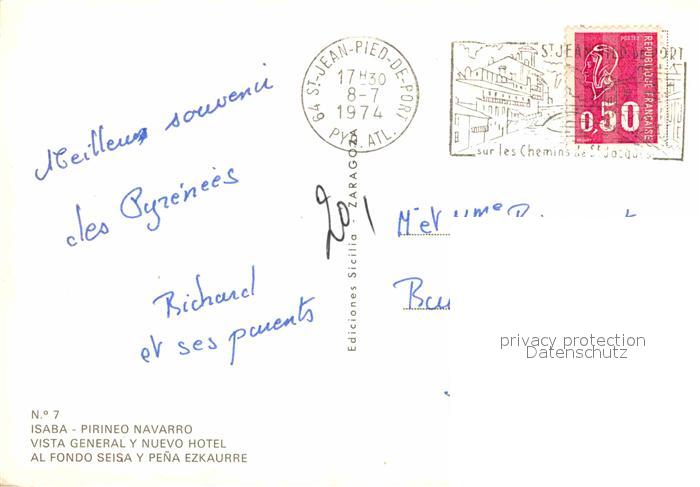 Meilleurs souvenir
des Pyrénées
Richard
et ses parents
N.º 7
ISABA - PIRINEO NAVARRO
VISTA GENERAL Y NUEVO HOTEL
AL FONDO SEISA Y PEÑA EZKAURRE
Ediciones Sicilia - ZARAGOZA
201
64 ST-JEAN-PIED-DE-PORT
17 H30
8-7
1974
PYR. ATL.
ST JEAN PIED DE PORT
sur les Chemins de St Jacques
POSTES
REPUBLIQUE FRANÇAISE
0,50
M et Mme
privacy protection
Datenschutz